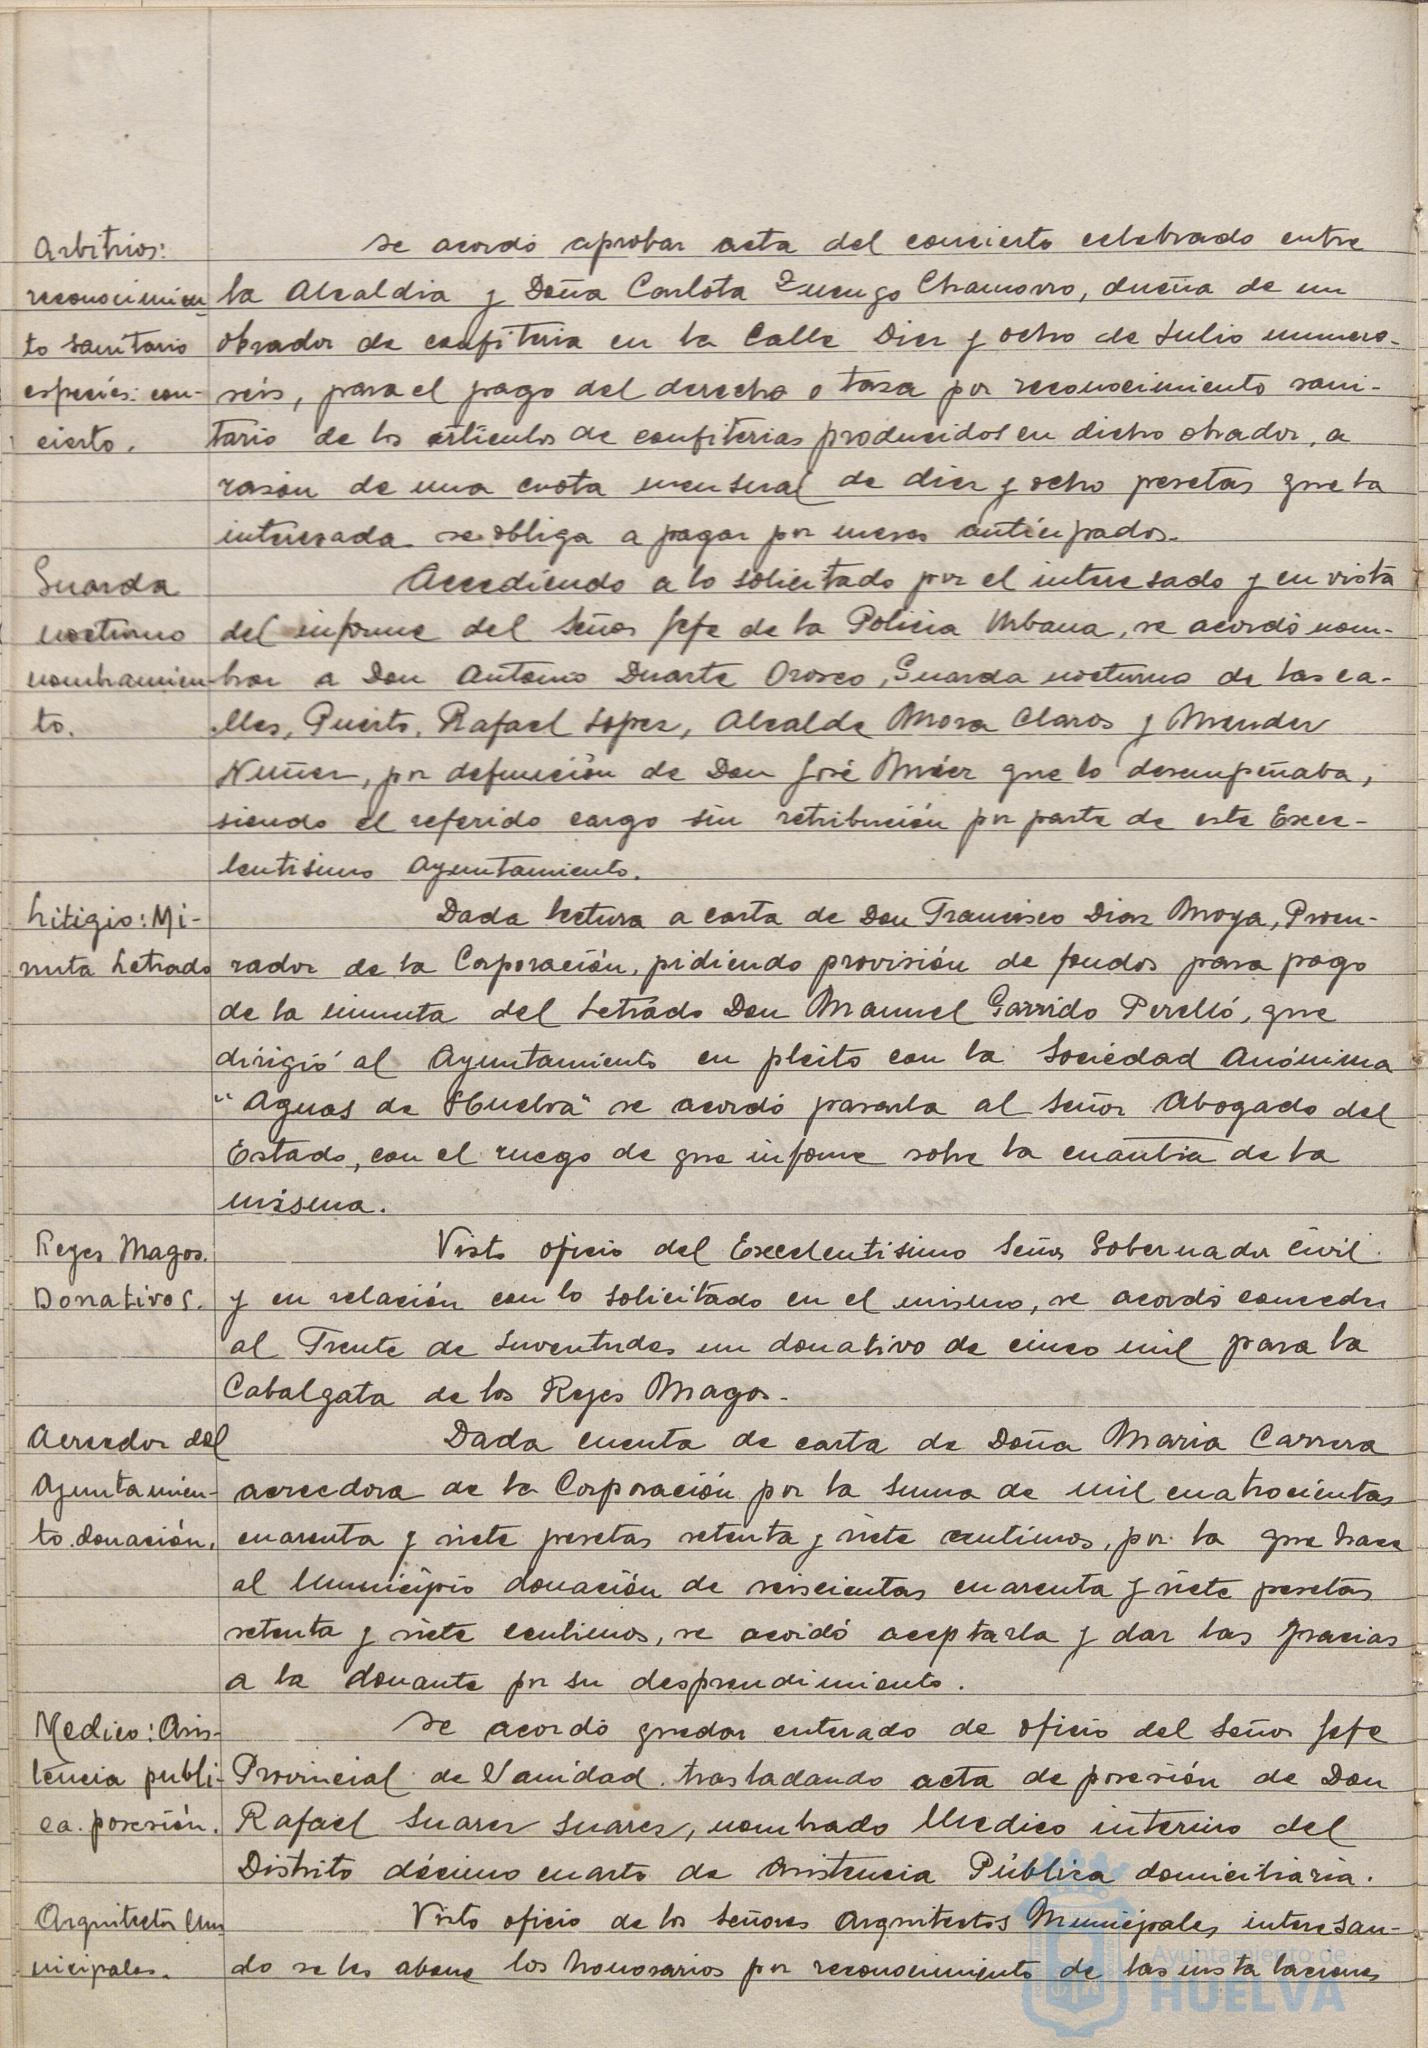 Arbitrios:
reconocimien
to sanitario
especies: con-
cierto.
Se acordó aprobar acta del concierto celebrado entre
la Alcaldia y Doña Carlota Zuengo Chamorro, dueña de un
obrador de confiteria en la Calle Diez y ocho de Julio numero
seis, para el pago del derecho o tasa por reconocimiento sani-
tario de los articulos de confiterias producidos en dicho obrador, a
razón de una cuota mensual de diez y ocho pesetas que la
interesada se obliga a pagar por meses anticipados.
Guarda
nocturno
nombramien-
to.
Accediendo a lo solicitado por el interesado y en vista
del informe del Señor Jefe de la Policia Urbana, se acordó nom-
brar a Don Antonio Duarte Orosco, Guarda nocturno de las ca-
lles, Puerto, Rafael Lopez, Alcalde Mora Claros y Mendez
Nuñez, por defunción de Don José que lo desempeñaba,
siendo el referido cargo sin retribución por parte de este Exce-
lentisimo Ayuntamiento.
Litigio: Mi-
nuta Letrado
Dada lectura a carta de Don Francisco Diaz Moya, Procu-
rador de la Corporación, pidiendo provisión de fondos para pago
de la minuta del Letrado Don Manuel Garrido Perelló, que
dirigió al Ayuntamiento en pleito con la Sociedad Anónima
"Aguas de Huelva" se acordó pasarla al Señor Abogado del
Estado, con el ruego de que informe sobre la cuantia de la
misma.
Reyes Magos.
Donativos.
Visto oficio del Excelentisimo Señor Gobernador Civil
y en relación con lo solicitado en el mismo, se acordó conceder
al Frente de Juventudes un donativo de cinco mil para la
Cabalgata de los Reyes Magos.
Acreedor del
Ayuntamien-
to. donación.
Dada cuenta de carta de Doña Maria Carrera
acreedora de la Corporación por la suma de mil cuatrocientas
cuarenta y siete pesetas setenta y siete centimos, por la que hace
al Municipio donación de seiscientas cuarenta y siete pesetas
setenta y siete centimos, se acordó aceptarla y dar las gracias
a la donante por su desprendimiento.
Medico: Asis-
tencia publi-
ca. posesión.
Se acordó quedar enterado de oficio del Señor Jefe
Provincial de Sanidad. trasladando acta de posesión de Don
Rafael Suarez Suarez, nombrado Medico interino del
Distrito décimo cuarto de Asistencia Pública domiciliaria.
Arquitectos Mu
nicipales.
Visto oficio de los Señores Arquitectos Municipales interesan-
do se les abone los honorarios por reconocimiento de las instalaciones
Ayuntamiento de
HUELVA